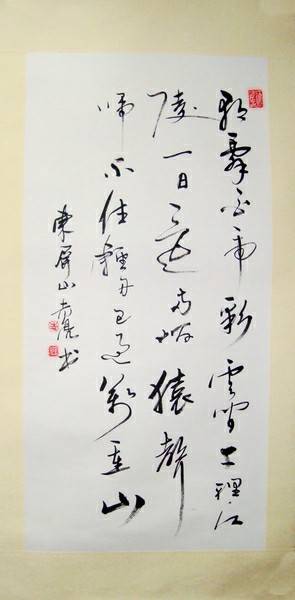 朝辭白帝彩雲間千里江
陵一日還兩岸猿聲
啼不住輕舟已過萬重山
屏山亮书